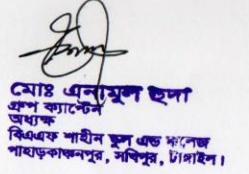 মোঃ এনামুল হুদা
গ্রুপ ক্যাপ্টেন
অধ্যক্ষ
বিএএফ শাহীন স্কুল এন্ড কলেজ
পাহাড়কাঞ্চনপুর, সখিপুর, টাঙ্গাইল।